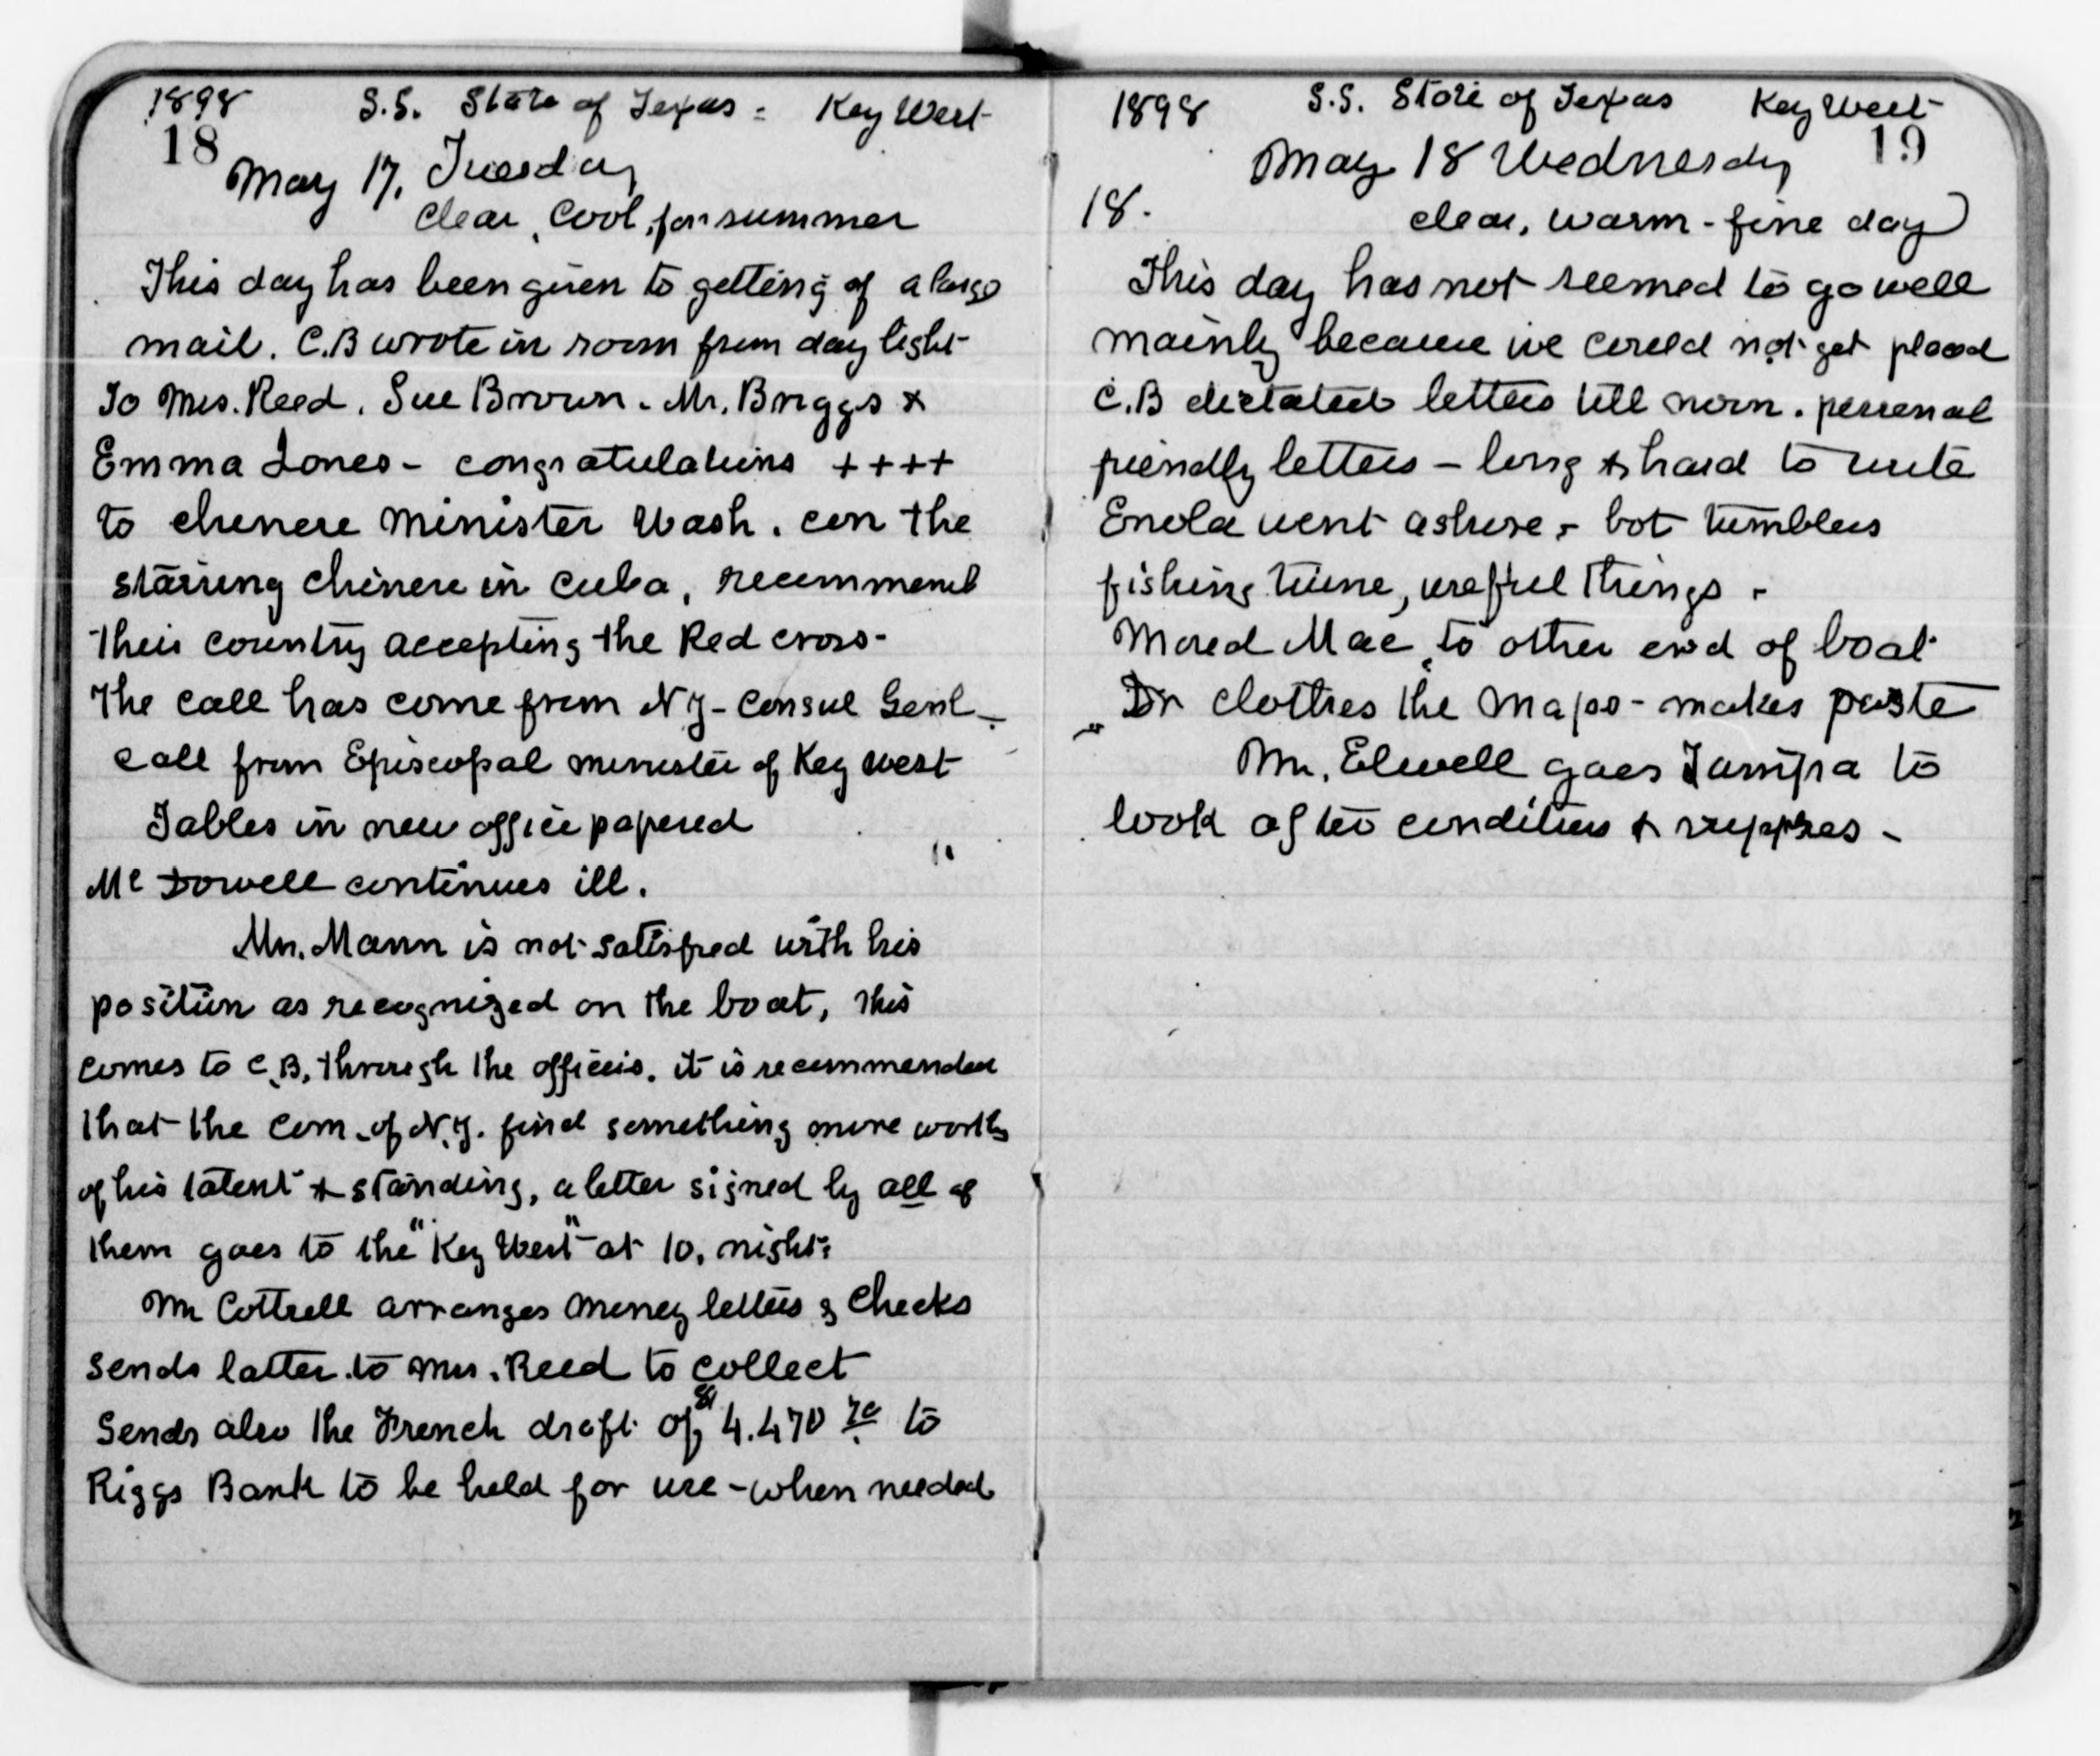 1898 S.S. State of Texas = Key West
18
May 17. Tuesday
clear, cool, for summer
This day has been given to getting of a large
mail. C.B wrote in room from day light
To Mrs. Reed. Sue Brown. Mr. Briggs &
Emma Jones - congratulations ++++
to chinese minister Wash. con the
starving chinese in Cuba, recommend
their country accepting the Red cross-
The call has come from N Y - Consul Genl -
call from Episcopal minister of Key West
Tables in new office papered
Mc Dowell continues ill.
Mr. Mann is not satisfied with his
position as recognized on the boat, this
comes to C.B, through the officers. it is recommended
that the com. of N.Y. find something more worthy
of his talent & standing, a letter signed by all of
them goes to the "Key West" at 10, night.
Mr Cottrell arranges money letters & checks
sends latter to Mrs. Reed to collect
Sends also the French draft of $ 4.470 to
Riggs Bank to be held for use - when needed
1898 S.S. State of Texas Key West
19
May 18 Wednesday
18. clear, warm - fine day
This day has not seemed to go well
mainly because we could not get placed
C.B dictated letters till noon. personal
friendly letters - long & hard to write
Enola went ashore - bot tumblers
fishing twine, useful things -
Moved Mac, to other end of boat
Dr clothes the maps - makes paste
Mr. Elwell goes Tampa to
look after conditions & supplies -